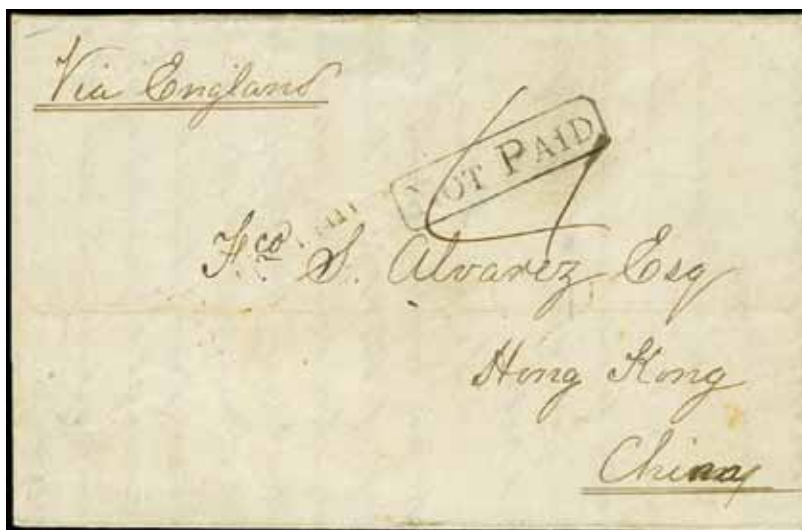 Via England
NOT PAID
Fco. S. Alvarez Esq
Hong Kong
China